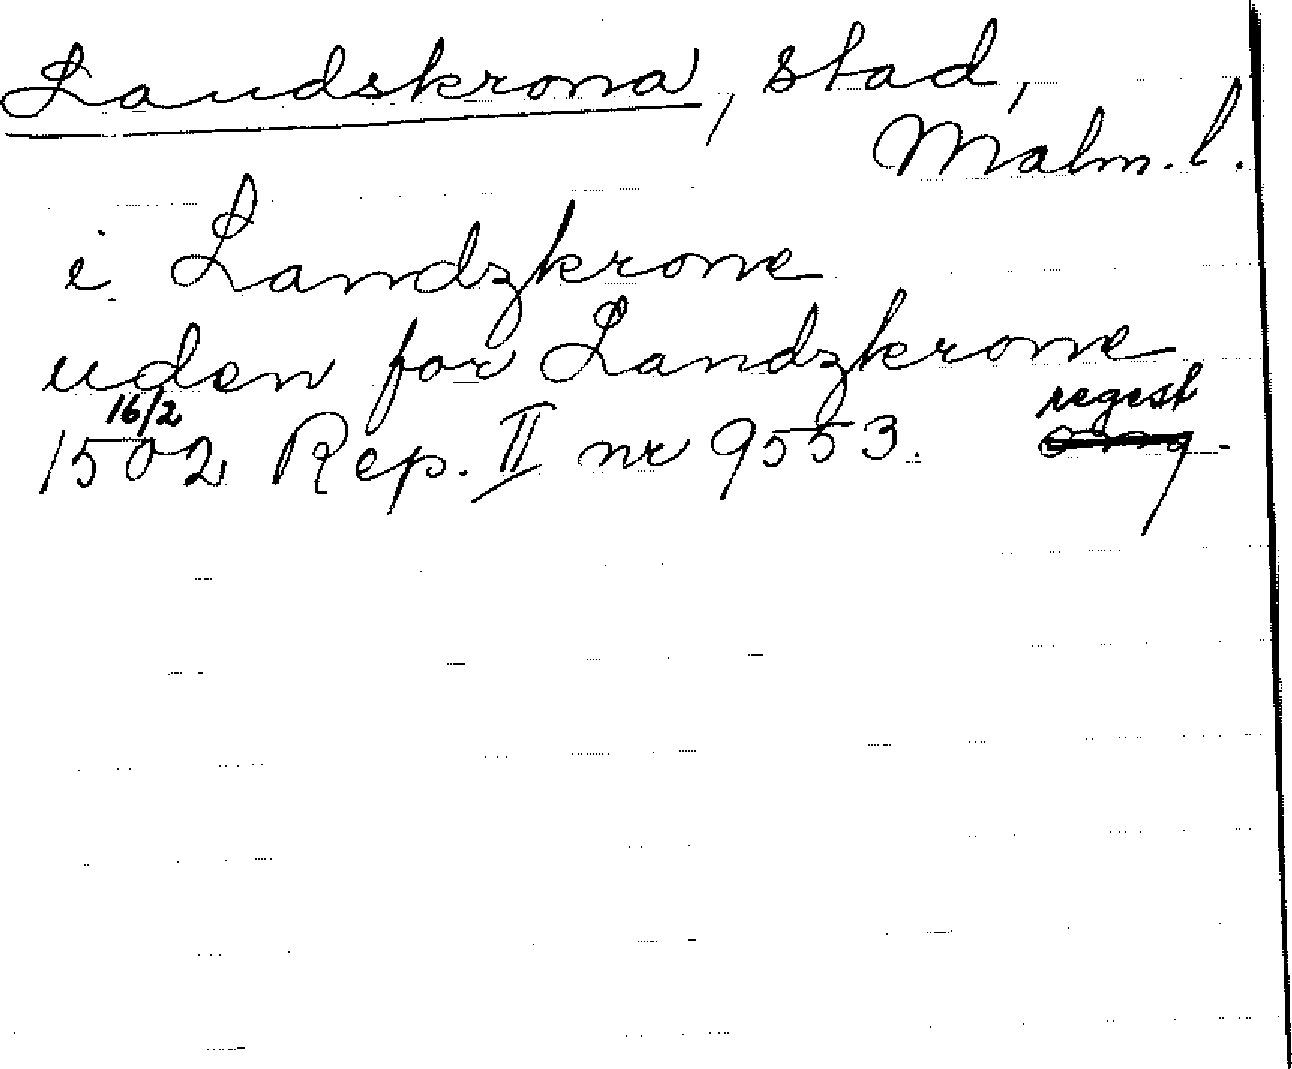 Landskrona, stad,
Malm. l.
i Landzkrone
uden for Landzkrone
16/2 regest
1502 Rep. II nr 9553. omg.